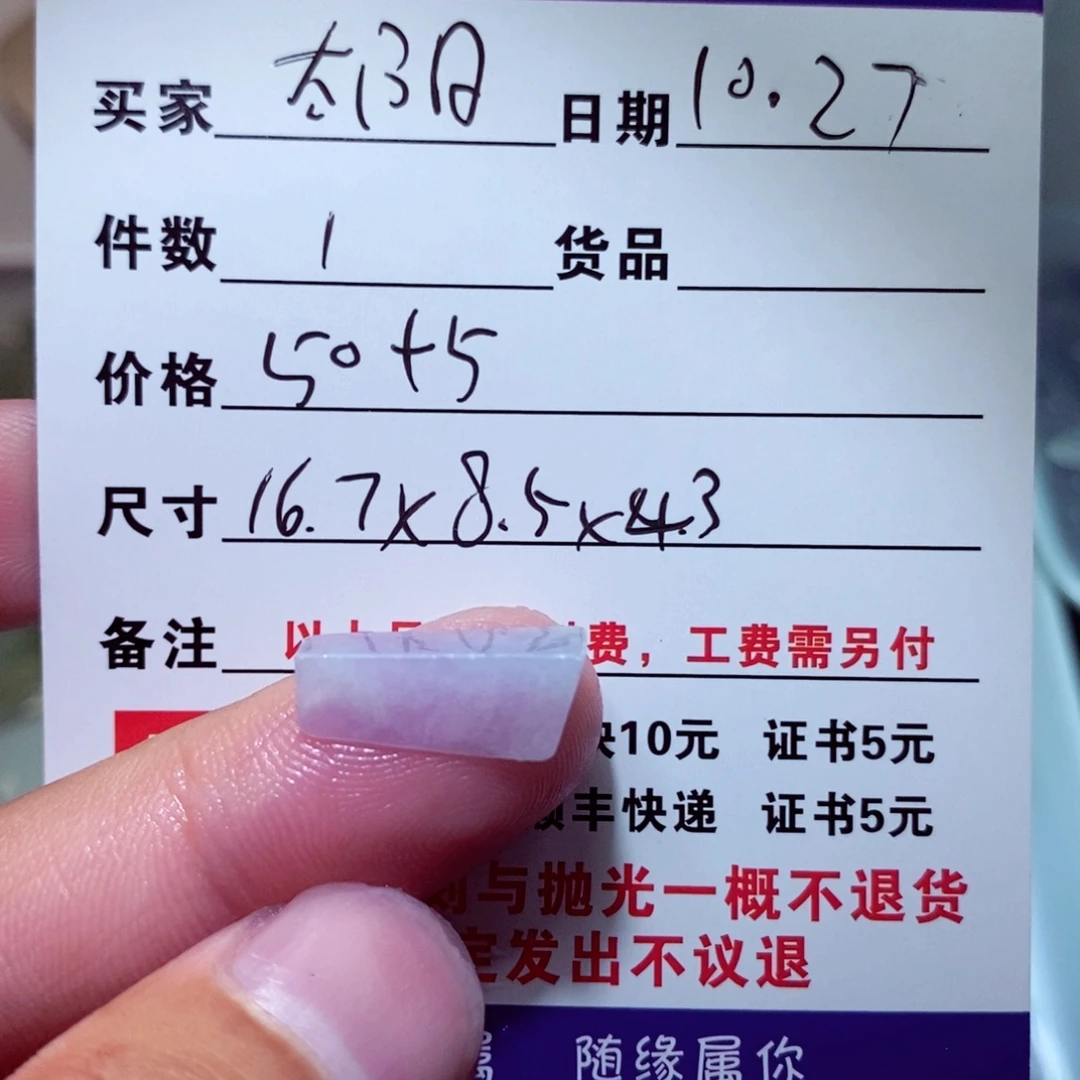 买家 太阳 日期 10.27
件数 1 货品
价格 50+5
尺寸 16.7x8.5x4.3
备注 费，工费需另付
10元 证书5元
顺丰快递 证书5元
与抛光一概不退货
定发出不议退
随缘属你